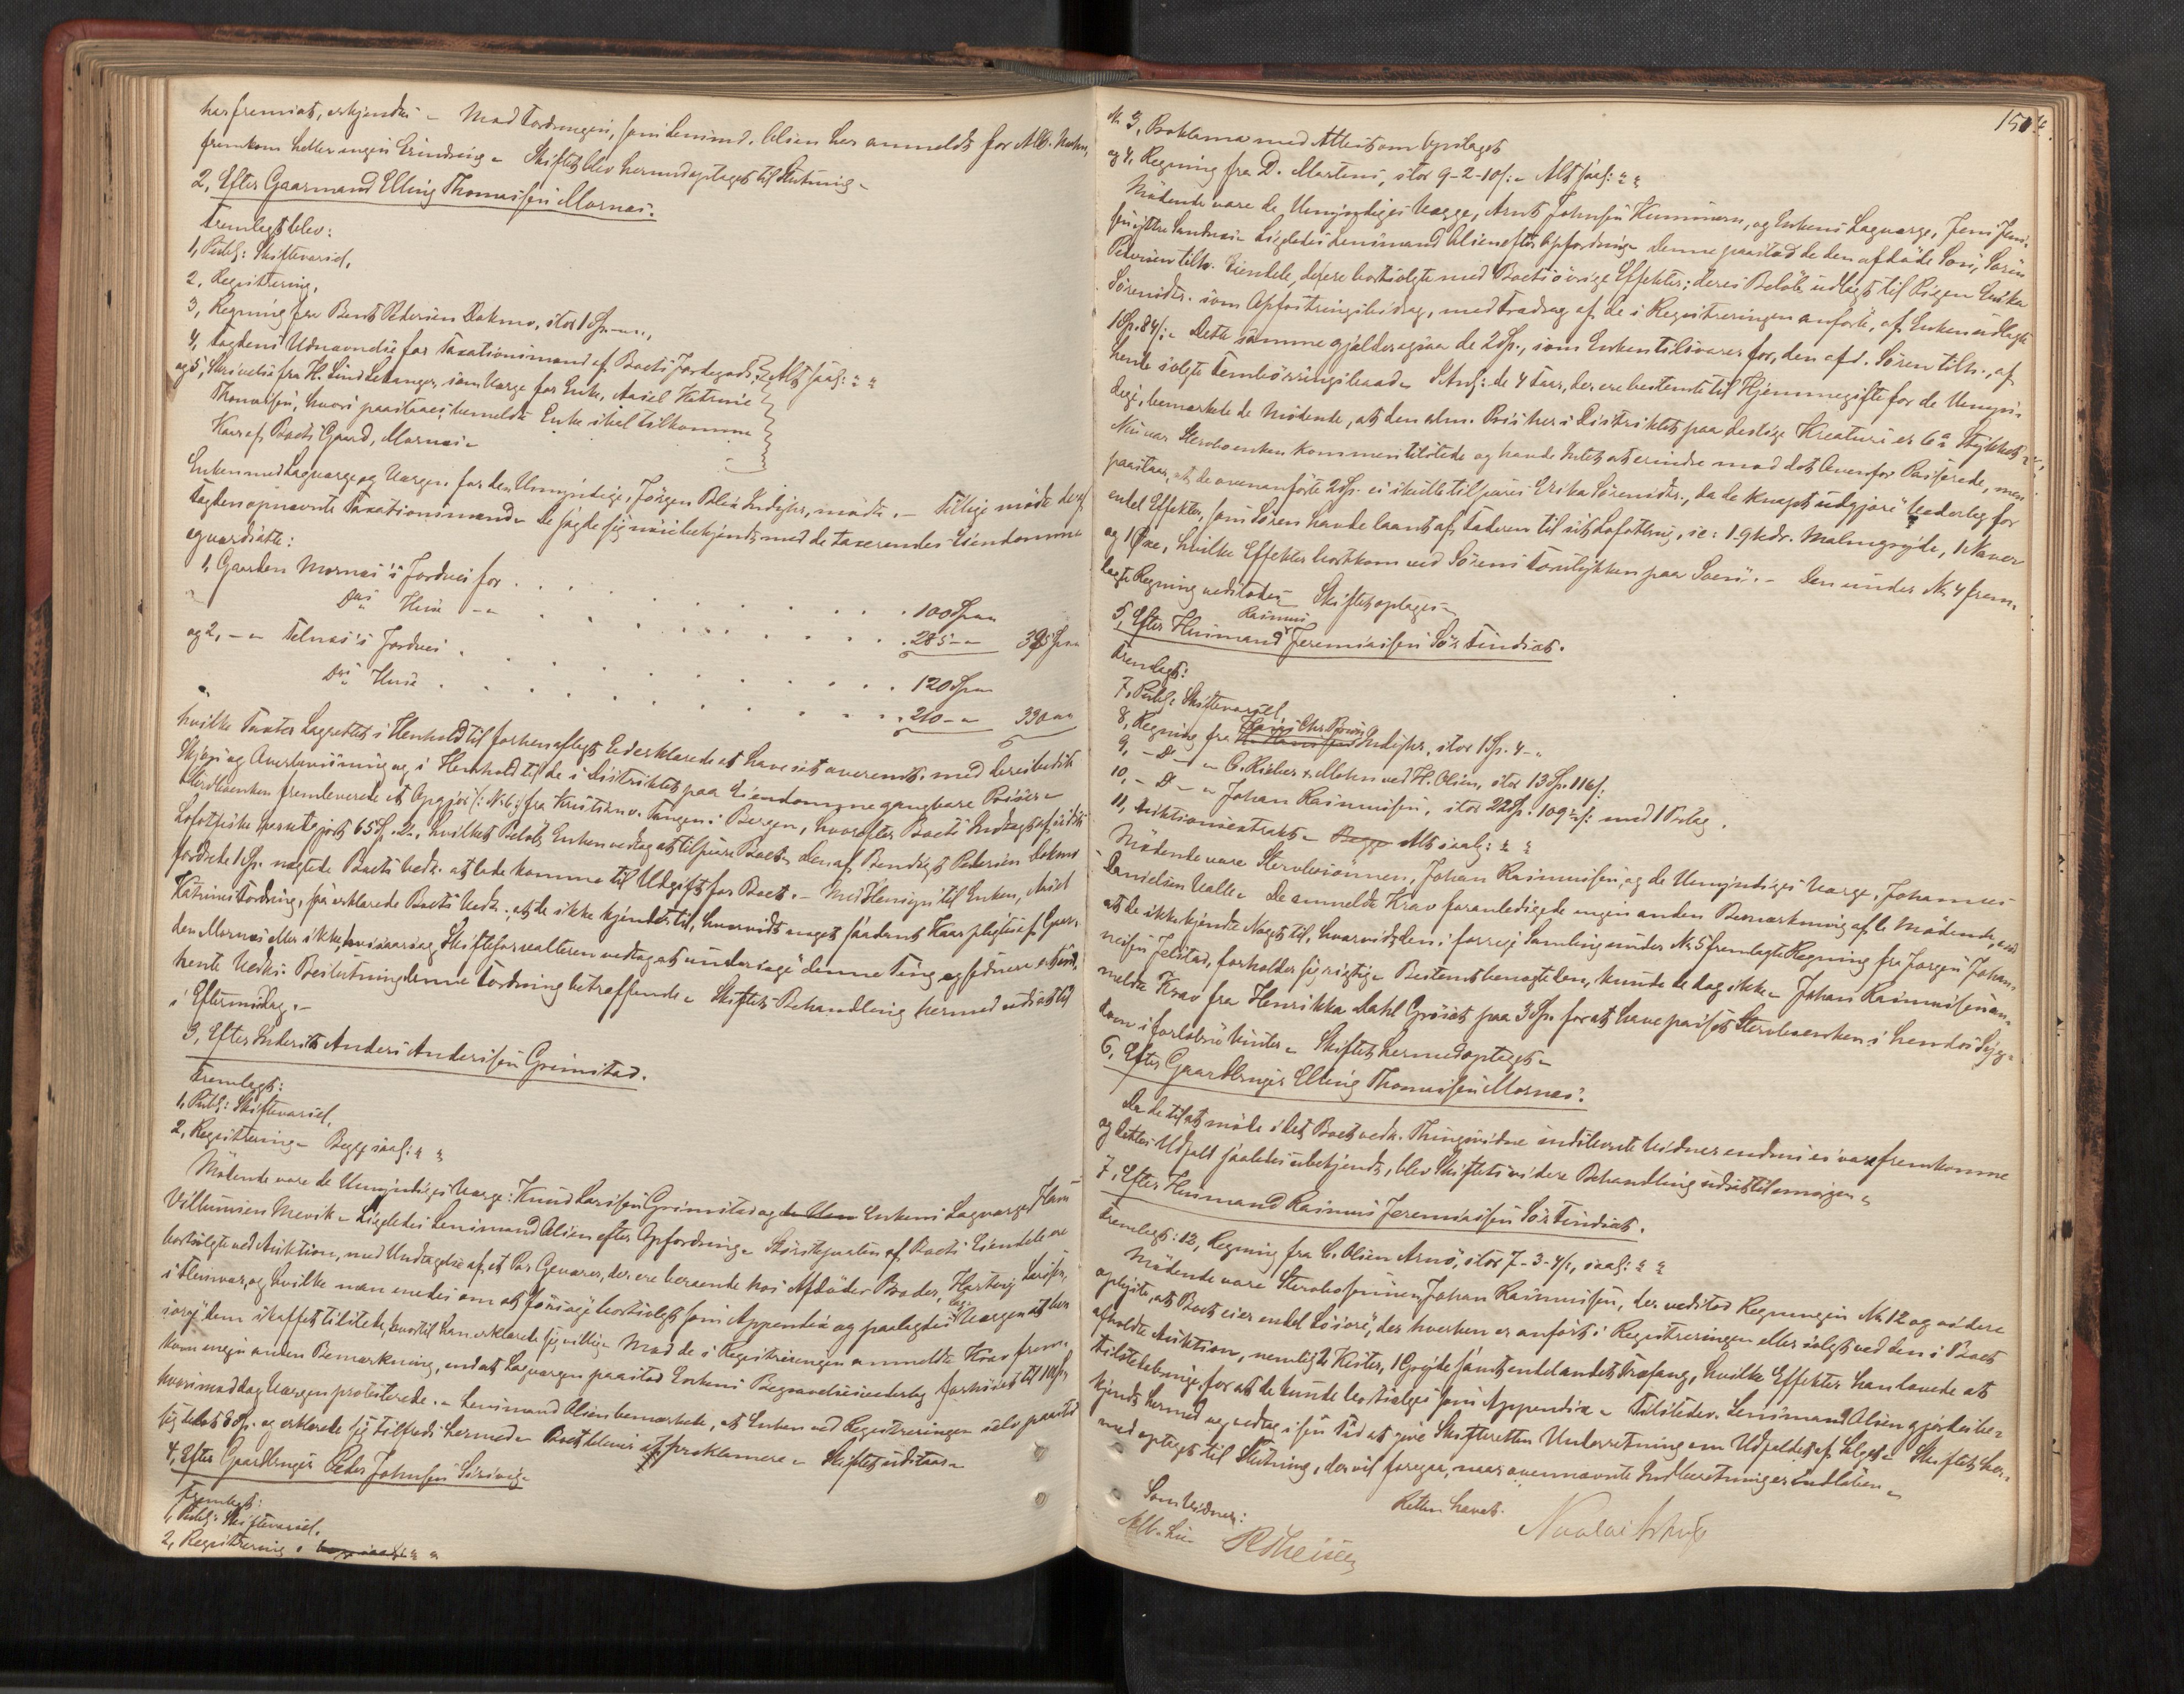 har fremsat, erkjendes – Mod Fordringen, som Lensmd. Olsen har anmeldt for Alb. Mohn,
fremkom heller ingen Erindring – Skiftet blev hermed optaget til Slutning –
2, Efter Gaarmand Elling Thomassen Mornæs.
Fremlagt blev:
1, Publ: Skiftevarsel,
2, Registrering,
3, Regning fra Bent Pedersen Dokmo, stor 1 Sp – – ,
4, Fogdens Udnævnelse for Taxationsmænd af Boets Jordegods,
og 5, Skrivelse fra H. Lind Lekanger, som Værge for Enke, Assiel Katrine
Thomassen, hvori paastaaes, bemeldte Enke skal tilkomme
Kaar af Boets Gaard, Mornæs –
Alt saal: " "
Enken med Laugværge og Værgen for den Umyndige, Jørgen Blix Indyhr, mødte. – Tillige mødte de af
Fogden opnævnte Taxationsmænd – De sagde sig nøie bekjendt med de taxerendes Eiendomme
og værdsatte:
1, Gaarden Mornæs's Jordvei for . . . . . . . . 100 Sp – –
Ds Huse – – . . . . . . . . 285 – – 385 Sp – –
og 2, – – Telnæs's Jordvei . . . . . . . . 120 Sp – –
Ds Huse . . . . . . . . 210 – – 330 – –
hvilke Taxter Lagrettet i Henhold til forhen aflagt Ed erklærede at have sat overenst. med deres bedste
Skjøn og Overbevisning og i Henhold til de i Distriktet paa Eiendomme gangbare Priser –
Stervboenken fremleverede et Opgjør (: No 6 :) fra Kristian v. Tangen i Bergen, hvorefter Boets Indtægt af sidste
Lofotfiske har udgjort 65 Sp. 2 –, hvilket Beløb Enken vedtog at tilsvare Boet – Den af Bendigt Pedersen Dokmo
fordrede 1 Sp. nægtede Boets Vedk. at lade komme til Udgift for Boet. – Med Hensyn til Enken, Assiel
Katrines Fordring, saa erklærede Boets Vedk. at de ikke kjendte til, hvorvidt noget saadant Kaar pligtes af Gaar-
den Mornæs eller ikke, hvisaarsag Skifteforvalteren vedtog at undersøge denne Ting og sidenere at ind-
hente Vedks. Beslutning denne Fordring betræffende – Skiftets Behandling hermed udsat til
i Eftermiddag. –
3, Efter Inderst Anders Andersen Grimstad.
Fremlagt:
1, Publ: Skiftevarsel,
2, Registrering – Begge saal: " "
Mødende vare de Umyndiges Værge: Knud Larssen Grimstad og Enkens Laugværge, Hans
Villumsen Mevik – Ligeledes Lensmand Olsen efter Opfordring – Størsteparten af Boets Eiendele ere
bortsolgte ved Auktion, med Undtagelse af et Par Geværer, der ere beroende hos Afdødes Broder, Hartvig Larssen,
i Fleinvær, og hvilke man enedes om at søge bortsolgt som Appendix og paalagdes Værgen at
sørge dem skaffet tilstede, hvortil han erklærede sig villig – Mod de i Registreringen anmeldte Krav frem-
kom ingen anden Bemærkning, end at Laugværgen paastod Enkens Begravelsesvederlag forhøiet til 10 Sp.
hvorimod dog Værgen protesterede. – Lensmand Olsen bemærkede, at Enken ved Registreringen selv paastod
sig tillagt 8 Sp. og erklærede sig tilfreds hermed – Boet bliver at proklamere – Skiftet udstaar –
4, Efter Gaardbruger Peder Johnsen Sørvig –
Fremlagt:
1, Publ: Skiftevarsel,
2, Registrering.

150
No 3, Proklama med Attest om Opslaget
og 4, Regning fra D. Martens, stor 9-2-10 s: – Alt saal: " "
Mødende vare de Umyndiges Værge, Arnt Johnsen Hummern, og Enkens Laugværge, Jens Jens-
sen ytre Sandnes – Ligeledes Lensmand Olsen efter Opfordring – Denne paastod de den afdøde Søn, Søren
Pedersen tilh. Eiendele, der ere bortsolgte med Boets øvrige Effekter; deres Beløb udlagt til Pigen Erika
Sørensdr. som Opfostringsbidrag, med Fradrag af de i Registreringen anførte, af Enken udlagte
1 Sp. 84 s: – Dette samme gjælder ogsaa de 2 Sp., som Enken tilsvarer for, den afd. Søren tilh., af
hende solgte Fembøringsbaad – I Anl: de 4 Faar, der ere bestemte til Hjemmegifte for de Umyn-
dige, bemærkede de Mødende, at den alm. Pris her i Distriktet paa deslige Kreature er 6 – Stykket –
Nu var Stervboenken kommen tilstede og havde Intet at erindre mod det Ovenfor Passerede, men
paastaar, at de ovenanførte 2 Sp. ei skulle tilfalde Erika Sørensdr., da de knapt udgjøre Vederlag for
endel Effekter, som Søren havde laant af Faderen til sit Lofottrug, ie: 1. 9 kdr. Malingryde, 1 Naver
og 1 Øxe, hvilke Effekter bortkom ved Sørens Forulykken paa Søen. – Den under No 4 frem-
lagte Regning vedstodes – Skiftet optages –
5, Efter Husmand Rasmus Jeremiassen Sør Findset.
Fremlagt:
7, Publ: Skiftevarsel
8, Regning fra Hans Chr. Indyhr, stor 1 Sp. 4 – –
9, – D – – C. Rieber & Mohn ved H. Olsen, stor 13 Sp. 116 s:
10, – D – – Johan Rasmussen, stor 22 Sp. 109 s: med 1 Bilag.
11, Auktionsextrakt – Begge Alt saal: " "
Mødende vare Stervbosønnen, Johan Rasmussen, og de Umyndiges Værge, Johannes
Danielsen Valle – De anmeldte Krav foranledigede ingen anden Bemærkning af de Mødende, end
at de ikke kjendte Noget til, hvorvidt den i forrige Samling under No 5 fremlagte Regning fra Jørgen Johan-
nesen Jelstad, forholder sig rigtig – Bestemt benægte den, kunde de dog ikke – Johan Rasmussen an-
meldte Krav fra Henrikka Dahl Grøset paa 3 Sp. for at have passet Stervboenken i hendes Syg-
dom i forløbne Vinter – Skiftet hermed optaget –
6, Efter Gaardbruger Elling Thomassen Mornæs.
Da de til at møde i det Boet vedk. Thingsvidne indstevnte Vidner endnu ei vare fremkomne
og dettes Udfald saaledes ubekjendt, blev Skiftets videre Behandling udsat til imorgen –
7, Efter Husmand Rasmus Jeremiassen Sør Findset.
Fremlagt: 12, Regning fra C. Olsen Arnø, stor 7-3-4 s:, saal: " "
Mødende vare Stervbosønnen Johan Rasmussen, der vedstod Regningen No 12 og videre
oplyste, at Boet eier endel Løsøre, der hverken er anført i Registreringen eller solgt ved den i Boet
afholdte Auktion, nemlig 2 Kister, 1 Gryde samt endel andet Træfang, hvilke Effekter han lovede at
tilstedebringe, for at de kunde bortsælges som Appendix – Tilstedev. Lensmand Olsen gjordes be-
kjendt hermed og vedtog i sin Tid at give Skifteretten Underretning om Udfaldet af Salget – Skiftet her-
med optaget til Slutning, der vil foregaa, naar ovennævnte Indberetning er indløben –
Som Vidner:
Retten hævet.